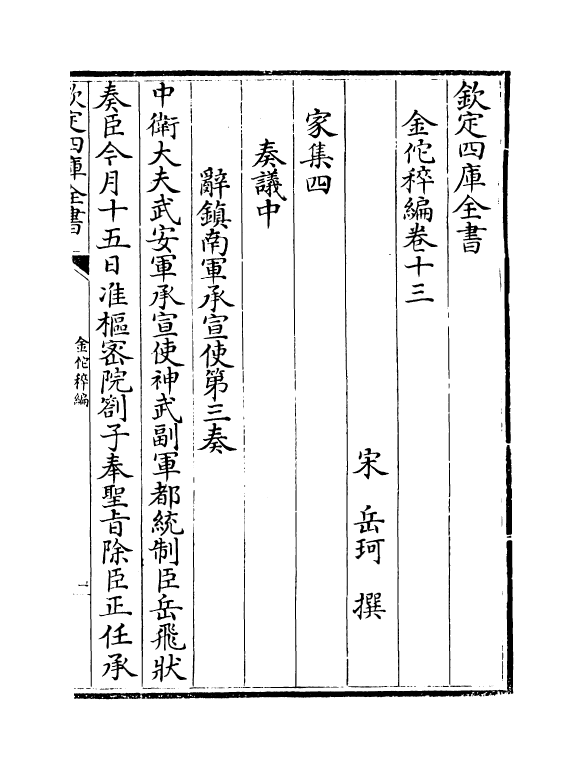 欽定四庫全書
金佗稡編卷十三
宋 岳珂 撰
家集四
奏議中
辭鎮南軍承宣使第三奏
中衛大夫武安軍承宣使神武副軍都統制臣岳飛狀
奏臣今月十五日准樞密院劄子奉聖旨除臣正任承
欽定四庫全書
金佗稡編
一